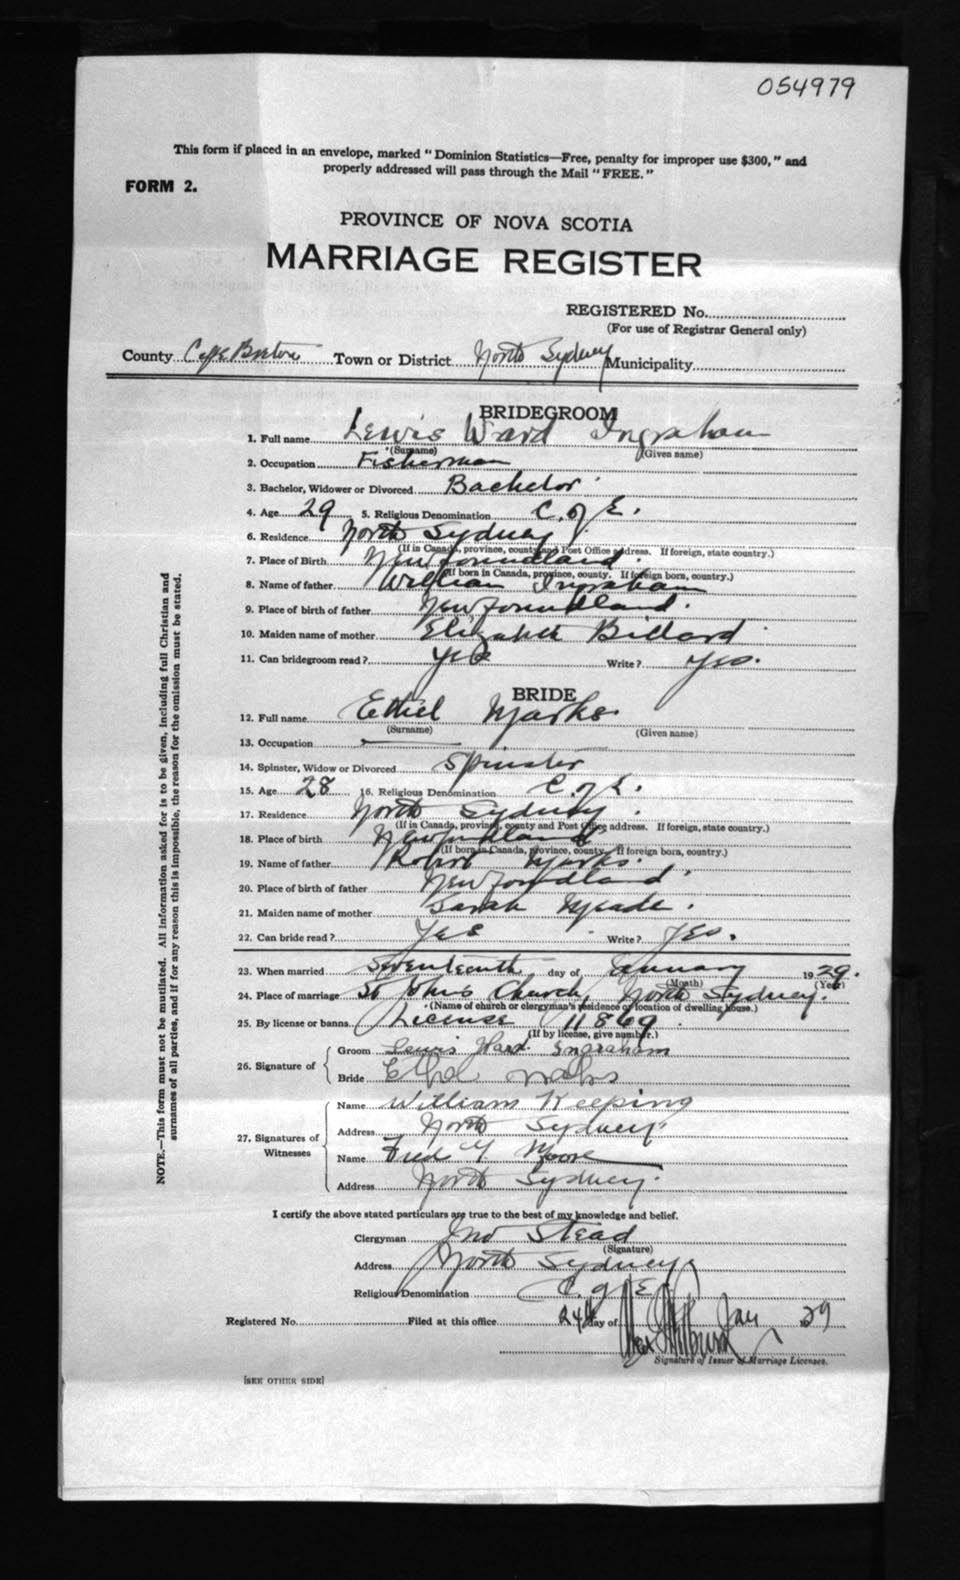 054979
This form if placed in an envelope, marked "Dominion Statistics—Free, penalty for improper use $300," and
properly addressed will pass through the Mail "FREE."
FORM 2.
PROVINCE OF NOVA SCOTIA
MARRIAGE REGISTER
REGISTERED No.
(For use of Registrar General only)
County Cape Breton Town or District North Sydney Municipality
BRIDEGROOM
1. Full name Lewis Ward Ingraham
(Surname) (Given name)
2. Occupation Fisherman
3. Bachelor, Widower or Divorced Bachelor
4. Age 29 5. Religious Denomination C. of E.
6. Residence North Sydney
(If in Canada, province, county and Post Office address. If foreign, state country.)
7. Place of Birth Newfoundland.
(If born in Canada, province, county. If foreign born, country.)
8. Name of father William Ingraham
9. Place of birth of father Newfoundland.
10. Maiden name of mother Elizabeth Billard
11. Can bridegroom read? Yes Write? Yes.
BRIDE
12. Full name Ethel Marks
(Surname) (Given name)
13. Occupation
14. Spinster, Widow or Divorced Spinster
15. Age 28 16. Religious Denomination C. of E.
17. Residence North Sydney
(If in Canada, province, county and Post Office address. If foreign, state country.)
18. Place of birth Newfoundland
(If born in Canada, province, county. If foreign born, country.)
19. Name of father Robert Marks.
20. Place of birth of father Newfoundland
21. Maiden name of mother Sarah Meade.
22. Can bride read? Yes Write? Yes.
23. When married Seventeenth day of January 1929.
(Month) (Year)
24. Place of marriage St Johns Church, North Sydney.
(Name of church or clergyman's residence or location of dwelling house.)
25. By license or banns License 11869
(If by license, give number.)
26. Signature of
Groom Lewis Ward Ingraham
Bride Ethel
27. Signatures of Witnesses
Name William Keeping
Address North Sydney
Name Fred Moore
Address North Sydney.
I certify the above stated particulars are true to the best of my knowledge and belief.
Clergyman Jno Stead
(Signature)
Address North Sydney
Religious Denomination C. of E.
Registered No. Filed at this office 24th day of Jan 29
Signature of Issuer of Marriage Licenses.
[SEE OTHER SIDE]
NOTE.—This form must not be mutilated. All information asked for is to be given, including full Christian and
surnames of all parties, and if for any reason this is impossible, the reason for the omission must be stated.